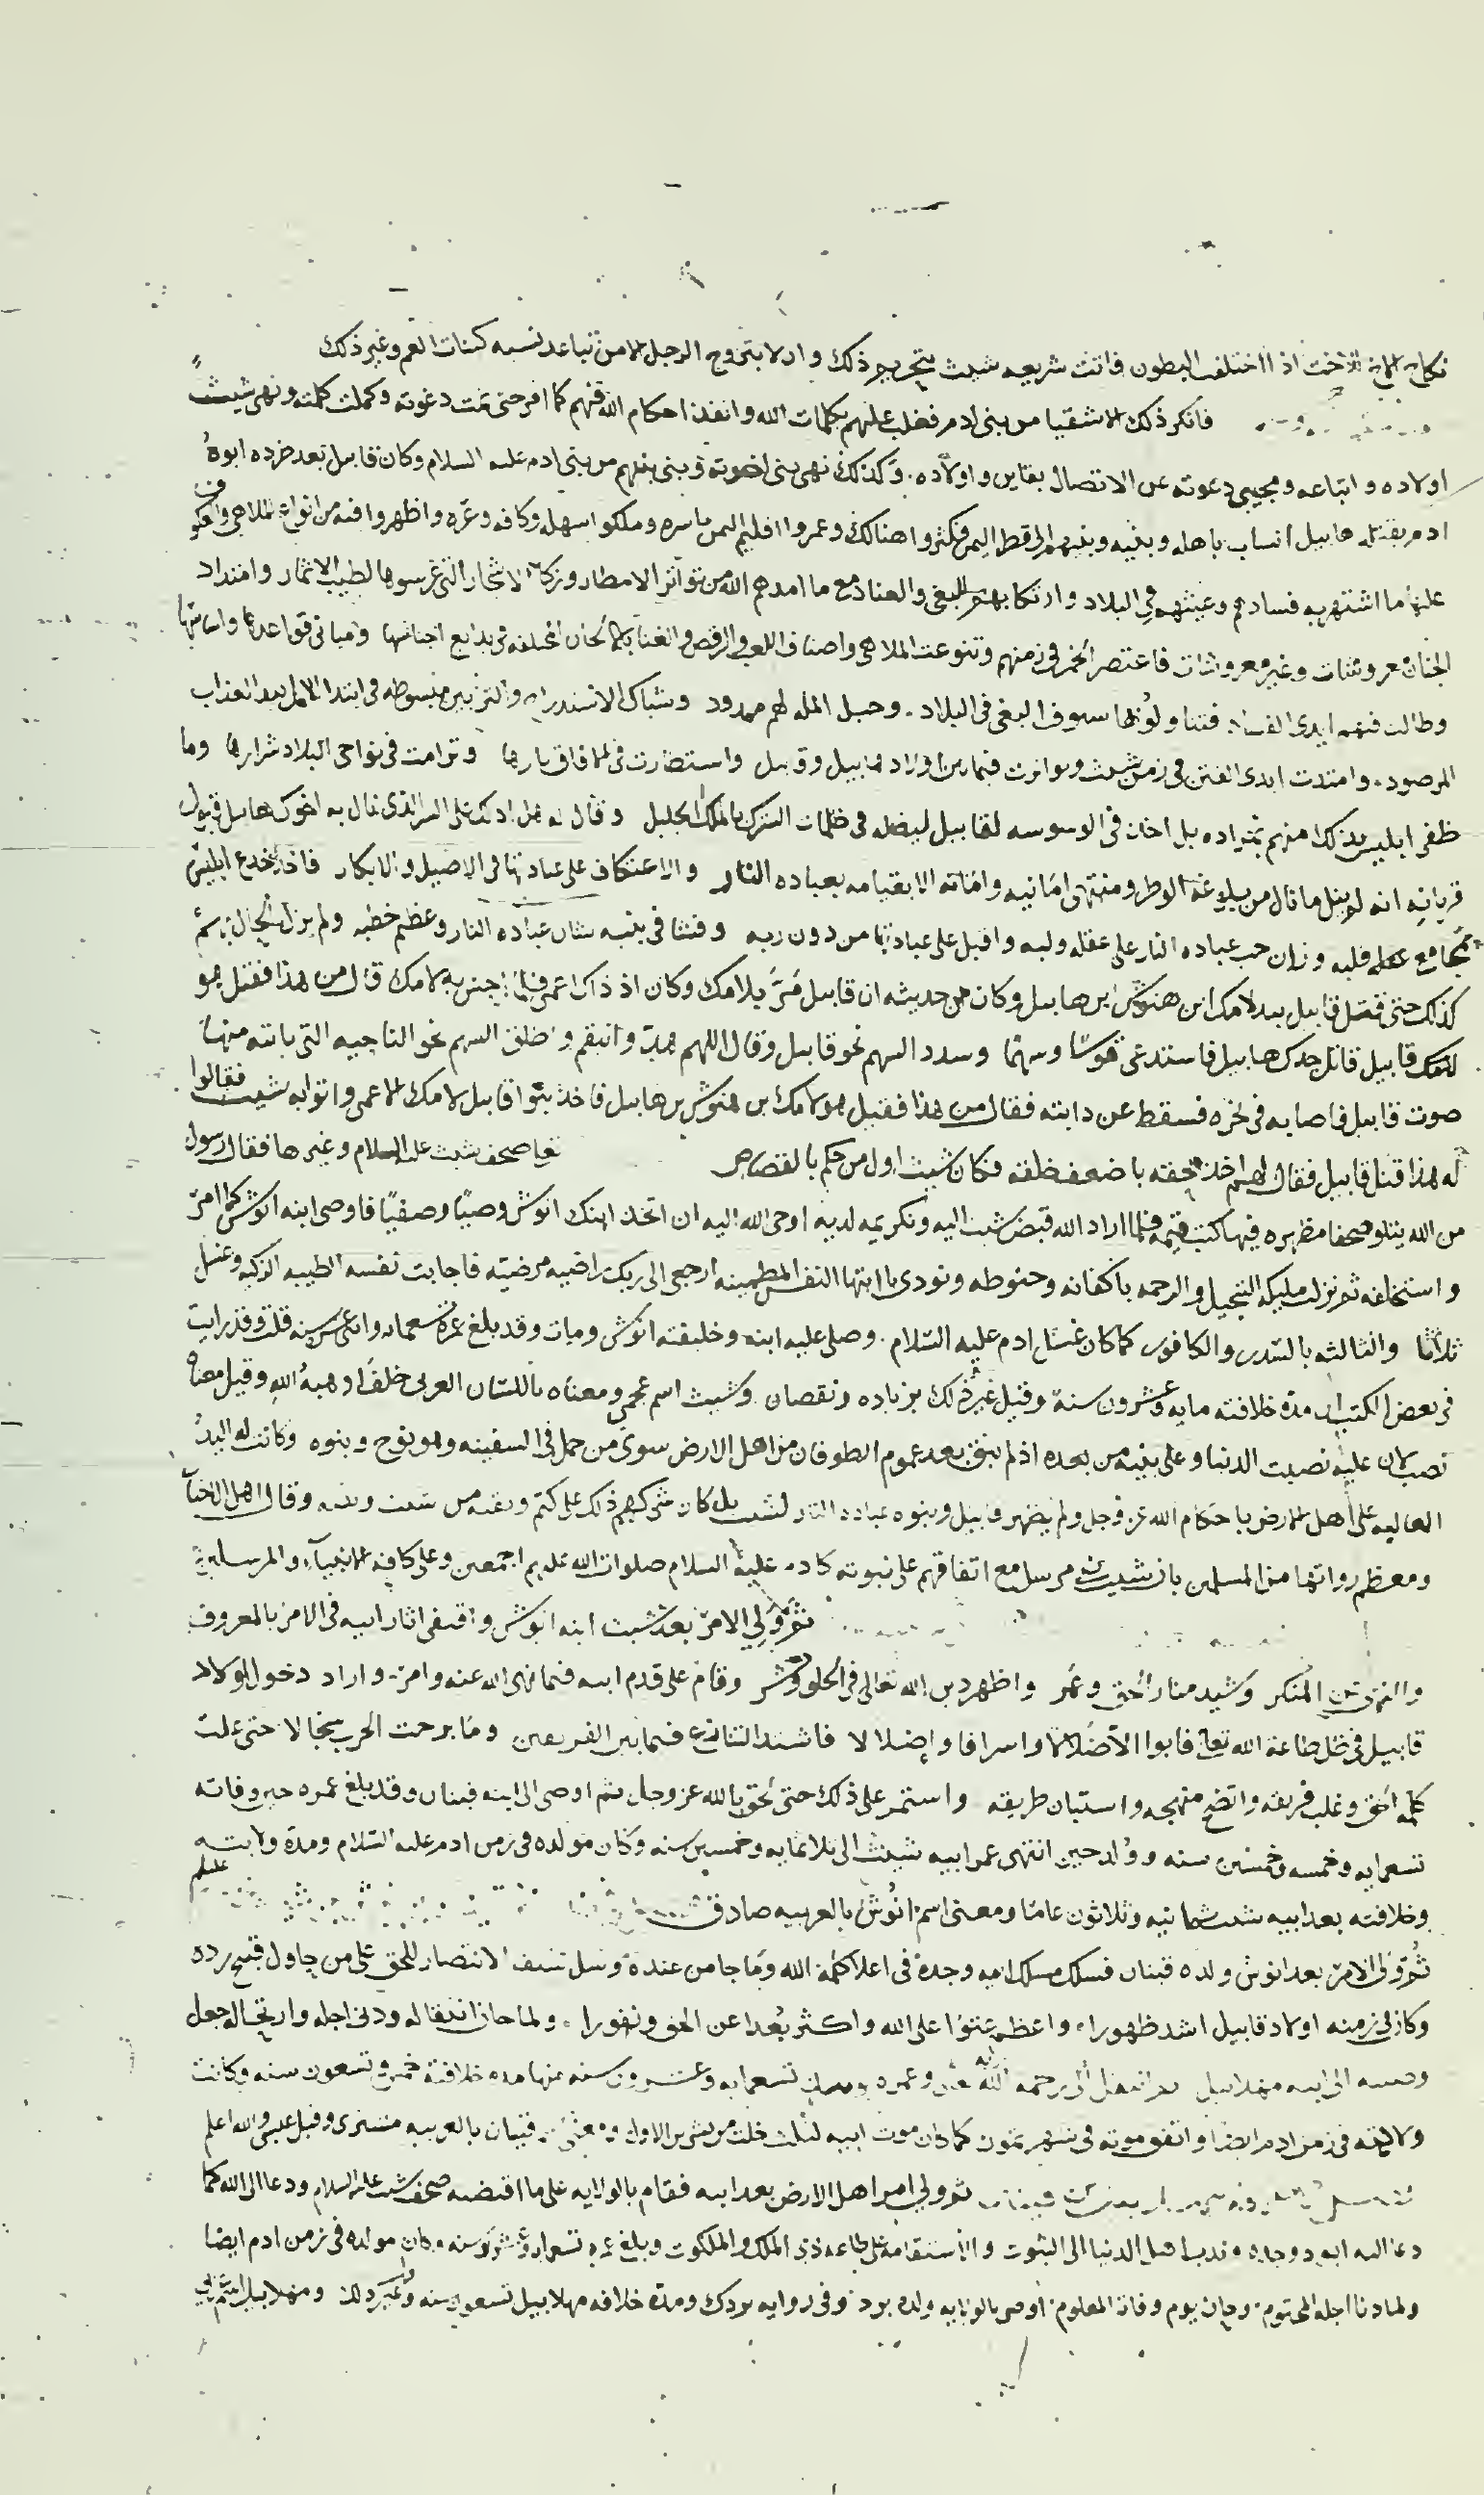 نكاح الاخ للاخت اذا اختلفت البطون فاتت شريعه شيث بتحريم ذلك وان لا يتزوج الرجل الا من تباعد نسبه كبنات العم وغير ذلك
فانكر ذلك الاشقيا من بنى ادم فغلب عليهم بكلمات الله وانفذ احكام الله فيهم كما امر حتى تمت دعوته وكملت كلمته ونهى شيث
اولاده واتباعه ومجيبى دعوته عن الاتصال بقاين واولاده. وكذلك نهى بنى اخوته وبنى بنيهم من بنى ادم عليه السلام وكان قابيل بعد طرده ابوه
ادم بقتله هابيل انساب باهله وبنيه وبنيهم الى قطر اليمن فكثروا هنالك وعمروا اقليم اليمن باسره وملكوا سهله وكافه وعره واظهروا فيه من انواع الملاهى والعكوف
عليها ما اشتهر به فسادهم وعيثهم فى البلاد وارتكابهم للبغى والعناد مع ما امدهم الله من تواتر الامطار وزكاء الاشجار التى غرسوها لطيب الاثمار وامتداد
الجنان معروشات وغير معروشات فاعتصر الخمر فى زمنهم وتنوعت الملاهى واصناف اللعب والرقص والغنا بالالحان المختلفه فى بدايع اجناسها ومبانى قواعدها واساسها
وطالت فيهم ايدى الفساد فتناولوا بها سيوف البغى فى البلاد. وحبل المله لهم ممدود وشباك الاستدراج والتزيين مبسوطه فى ابتدا الامل بيد العذاب
المرصود. وامتدت ايدى الفتن فى زمن شيث وتواترت فيما بين اولاد هابيل وقابيل واستطارت فى الافاق نارها وترامت فى نواحى البلاد شرارها وما
ظفر ابليس بذلك منهم بمراده بل اخذ فى الوسوسه لقابيل ليضله فى ظلمات الشرك بالملك الجليل وقال له هل ادلك على السر الذى نال به اخوك هابيل قبول
قربانه انه لم ينل ما نال من بلوغه الوطر ومنتهى امانيه وامانته الا بقيامه بعباده النار والاعتكاف على عبادتها فى الاصيل والابكار فاذا خدع ابليس
بمجامع قلبه وزان حب عباده النار على عقله ولبه واقبل على عبادتها من دون ربه وفشا فى بنيه شان عباده النار وعظم خطبه ولم يزل الحال برسم
كذلك حتى قتل قابيل بيد لامك ابن هنوش ابن هابيل وكان من حديثه ان قابيل مر بلامك وكان اذ ذاك اعمى فلما احس به لامك قال من هذا فقيل هو
قابيل قاتل جدك هابيل فاستدعى قوسا وسهما وسدد السهم نحو قابيل وقال اللهم وانتقم واطلق السهم نحو الناحيه التى باتته منها
صوت قابيل فاصابه فى نحره فسقط عن دابته فقال من هذا فقيل هو لامك بن هنوش بن هابيل فاخذ بنوا قابيل لامك الاعمى واتوا به شيث فقالوا
له هذا قتل قابيل فقال لهم اخذ بحقه باضعف خلقه فكان شيث اول من حكم بالقصاص صحف شيث عليه السلام وغيرها فقال رسول
من الله يتلو صحفا مطهره فيها كتب قيمه فلما اراد الله قبض شيث اليه وتكريمه لديه اوحى الله اليه ان اتخذ ابنك انوش وصيا وصفيا فاوصى ابنه انوش كما امر
واستخلفه ثم نزلت مليكه التبجيل والرحمه باكفانه وحنوطه ونودى يا ايتها النفس المطمينه ارجعى الى ربك راضيه مرضيه فاجابت نفسه الطيبه الزكيه وغسل
ثلاثا والثالثه بالسدر والكافور كما كان غسل ادم عليه السلام. وصلى عليه ابنه وخليفته انوش ومات وقد بلغ عمره تسعمايه واثنى عشر سنه قلت وقد رايت
فى بعض الكتب ان مدة خلافته مايه وعشرون سنة وقيل غير ذلك بزياده ونقصان وشيث اسم عجمى ومعناه باللسان العربى خلفا وهبة الله وقيل معناه
نصب لان عليه نصبت الدنيا وعلى بنيه من بعده اذ لم يبق بعد عموم الطوفان من اهل الارض سوى من حمل فى السفينه وهو نوح وبنوه وكانت له اليد
العاليه على اهل الارض باحكام الله عز وجل ولم يظهر قابيل وبنوه عباده النار لشيث بل كان شركهم ذلك على كتم وتقيه من شيث وبنيه وقال اهل الاخبار
ومعظم رواتها من المسلمين بان شيث نبى مرسل مع اتفاقهم على نبوته كادم عليه السلام صلوات الله عليهم اجمعين وعلى كافه الانبياء والمرسلين
ثم ولى الامر بعد شيث ابنه انوش واقتفى اثار ابيه فى الامر بالمعروف
والنهى عن المنكر وشيد منار الحق وعمر واظهر دين الله تعالى فى الخلق ونشر وقام على قدم ابيه فيما نهى الله عنه وامر. واراد دخول اولاد
قابيل فى ظل طاعة الله تعالى فابوا الا ضلالا واسرافا واضلالا فاشتد التنازع فيما بين الفريقين وما برحت الحرب سجالا حتى علت
كلمه الحق وغلب فريقه واتضح منهجه واستبان طريقه واستمر على ذلك حتى لحق بالله عز وجل ثم اوصى الى ابنه قينان وقد بلغ عمره حين وفاته
تسعمايه وخمسه وخمسين سنه وولد حين انتهى عمر ابيه شيث الى ثلاثمايه وخمسين سنه وكان مولده فى زمن ادم عليه السلام ومدة ولايته
وخلافته بعد ابيه شيث ثمانيه وثلاثون عاما ومعنى اسم انوش بالعربيه صادق
ثم ولى الامر بعد انوش ولده قينان فسلك مسلك ابيه وجده فى اعلا كلمة الله وما جا من عنده وسل سيف الانتصار للحق على من حاول قبيح رده
وكان فى زمنه اولاد قابيل اشد ظهورا. واعظم عتوا على الله واكثر بعدا عن الحق ونفورا. ولما حان انتقاله ودنى اجله وارتحاله جعل
وصيته الى ابنه مهلابيل ثم انتقل الى رحمه الله وعمره تسعمايه وعشرون سنه منها مده خلافته خمس وتسعون سنه وكانت
ولادته فى زمن ادم ايضا واتفق موته فى شهر تموز كما كان موت ابيه لثلث خلت من تشرين الاول ومعنى قينان بالعربيه مشترى وقيل عيسى والله اعلم
ثم ولى امر اهل الارض بعد ابيه فقام بالولايه على ما اقتضته صحف شيث عليه السلام ودعا الى الله كما
دعا اليه ابوه وجده وندب اهل الدنيا الى الثبوت والاستقامه على طاعه ذى الملك والملكوت وبلغ عمره تسعمايه وعشرون سنه وكان مولده فى زمن ادم ايضا
ولما دنا اجله المحتوم. وحان يوم وفاته المعلوم. اوصى بالولايه ولده يرد وفى روايه يردك ومدة خلافه مهلابيل تسعون سنه وقيل غير ذلك ومهلابيل اسم